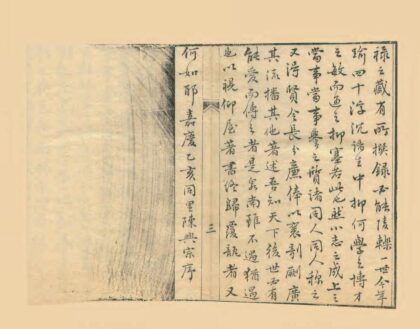 祿之藏有所撰録必能陵轢一世今年
踰四十浮沉諸生中抑何學之博才
之敏而遇之抑塞若此也然小志之成上之
當事當事譽之質諸同人同人稱之
又得賢令長分廉俸以襄剞劂廣
其流播其他著述吾知天下後世必有
能愛而傳之者是南雖不遇猶遇
也以視仰屋著書終歸覆瓿者又
三
何如耶嘉慶乙亥同里陳興宗序